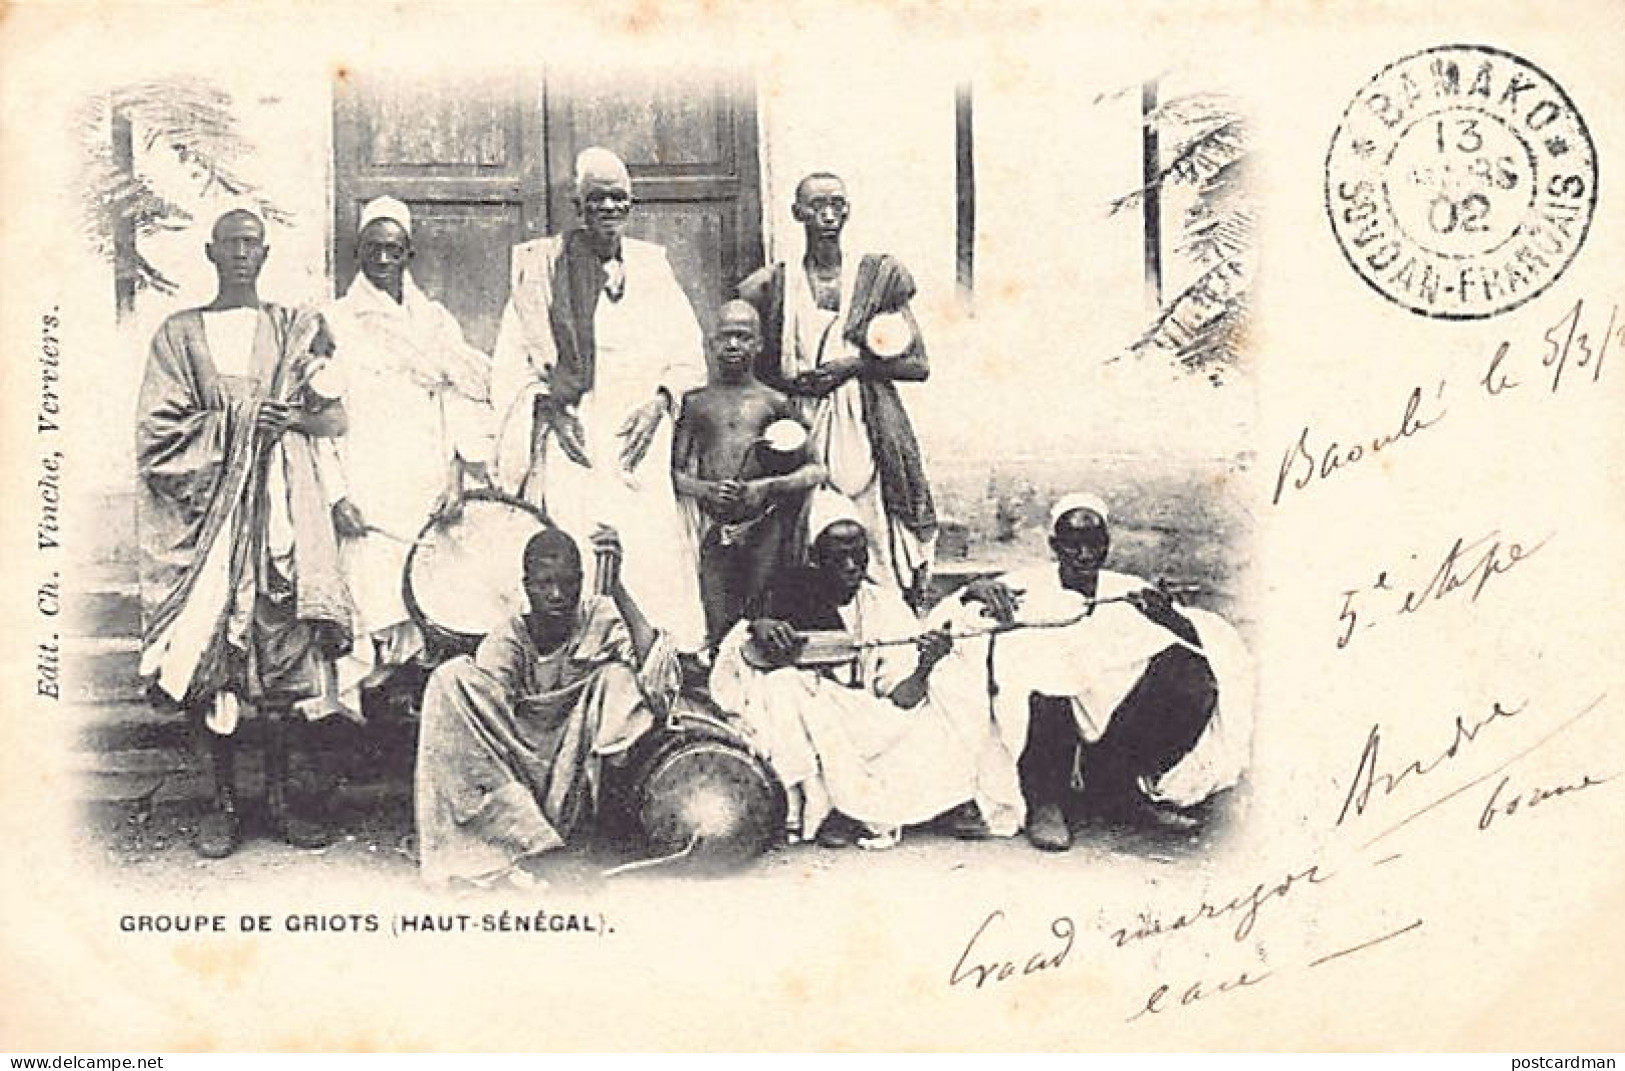 Edit. Ch. Vinche, Verviers.
* BAMAKO *
13
MARS
02
SOUDAN-FRANÇAIS
Baoulé le 5/3/
5e étape
André
bonne
GROUPE DE GRIOTS (HAUT-SÉNÉGAL).
https://www.delcampe.net
postcardman